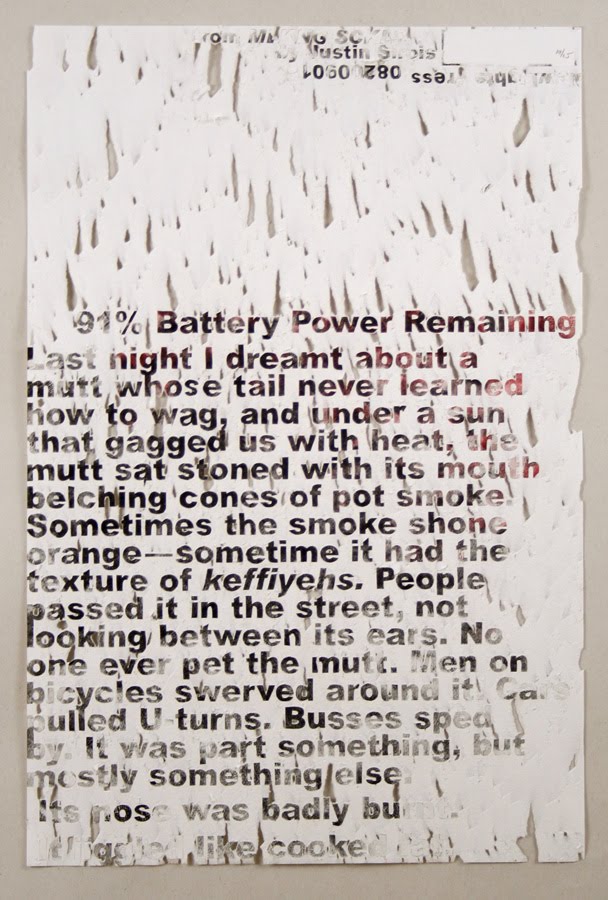 from MAKING SCRAP
by Justin Sirois
08200901
91% Battery Power Remaining
Last night I dreamt about a
mutt whose tail never learned
how to wag, and under a sun
that gagged us with heat, the
mutt sat stoned with its mouth
belching cones of pot smoke.
Sometimes the smoke shone
orange—sometime it had the
texture of keffiyehs. People
passed it in the street, not
looking between its ears. No
one ever pet the mutt. Men on
bicycles swerved around it. Cars
pulled U-turns. Busses sped
by. It was part something, but
mostly something else.
Its nose was badly burnt.
It jiggled like cooked